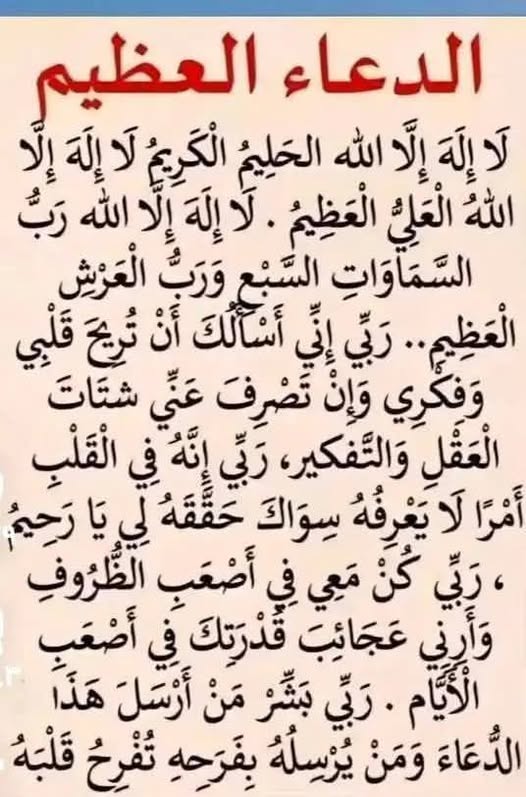 الدعاء العظيم
لَا إِلَهَ إِلَّا الله الحَلِيمُ الْكَرِيمُ لَا إِلَهَ إِلَّا
اللهُ الْعَلِيُّ الْعَظِيمُ . لَا إِلَهَ إِلَّا الله رَبُّ
السَّمَاوَاتِ السَّبْعِ وَرَبُّ الْعَرْشِ
الْعَظِيمِ.. رَبِّي إِنِّي أَسْأَلُكَ أَنْ تُرِيحَ قَلْبِي
وَفِكْرِي وَإِنْ تَصْرِفَ عَنِّي شتَاتَ
الْعَقْلِ وَالتَّفكير، رَبِّي إِنَّهُ فِي الْقَلْبِ
أَمْرًا لَا يَعْرِفُهُ سِوَاكَ حَقَّقَهُ لِي يَا رَحِيمُ
، رَبِّي كُنْ مَعِي فِي أَصْعَبِ الظُّرُوفِ
وَأَرِنِي عَجَائِبَ قُدْرَتِكَ فِي أَصْعَبِ
الْأَيَّامِ . رَبِّي بَشِّرْ مَنْ أَرْسَلَ هَذَا
الدُّعَاءَ وَمَنْ يُرْسِلُهُ بِفَرَحِهِ تُفْرِحُ قَلْبَهُ